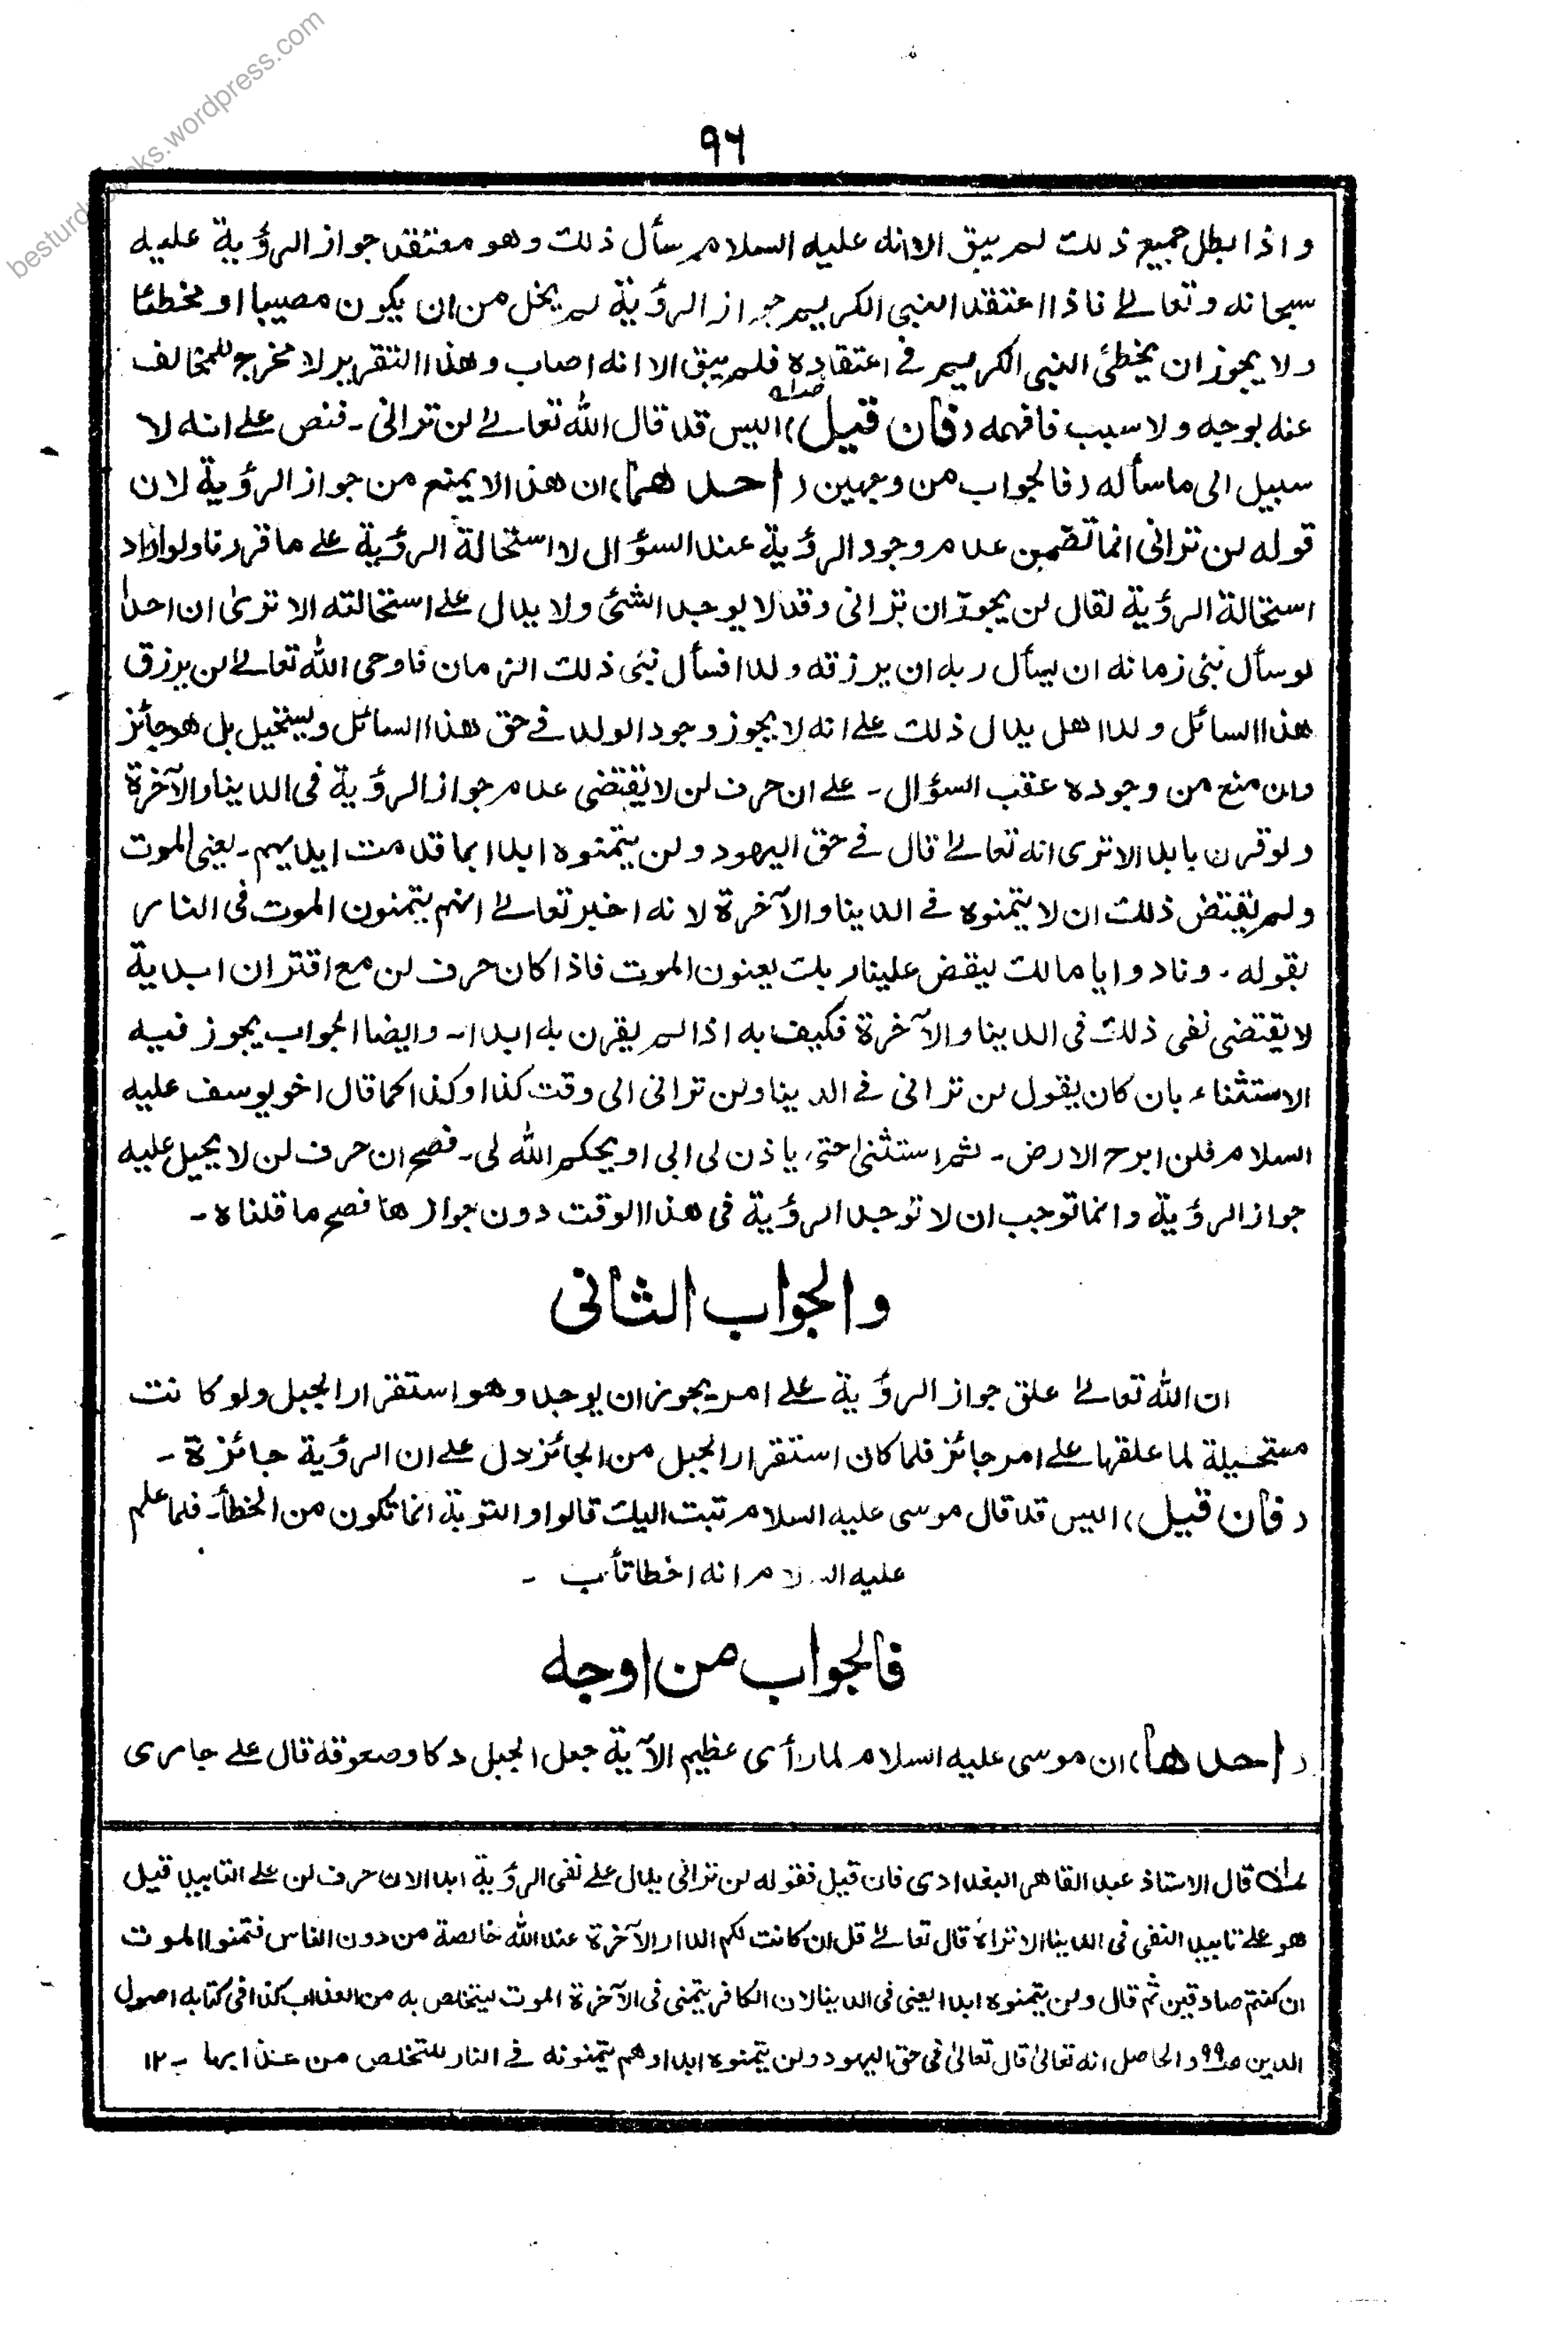 besturdubooks.wordpress.com
٩٦
واذا بطل جميع ذلك لم يبق الا انه عليه السلام سأل ذلك وهو معتقد جواز الرؤية عليه
سبحانه وتعالى فاذا اعتقد النبي الكريم جواز الرؤية لم يخل من ان يكون مصيبا او مخطئا
ولا يجوز ان يخطئ النبي الكريم في اعتقاده فلم يبق الا انه اصاب وهذا التقرير لا مخرج للمخالف
عنه بوجه ولا سبب فافهمه (فان قيل) اليس قد قال الله تعالى لن تراني - فنص على انه لا
سبيل الى ما سأله (فالجواب من وجهين (احدهما) ان هذا لا يمنع من جواز الرؤية لان
قوله لن تراني انما تضمن عدم وجود الرؤية عند السؤال لا استحالة الرؤية على ما قررنا ولو اراد
استحالة الرؤية لقال لن يجوز ان تراني وقد لا يوجد الشئ ولا يدل على استحالته الا ترى ان احدا
لو سأل نبي زمانه ان يسأل ربه ان يرزقه ولدا فسأل نبي ذلك الزمان فاوحى الله تعالى لن يرزق
هذا السائل ولدا هل يدل ذلك على انه لا يجوز وجود الولد في حق هذا السائل ويستحيل بل هو جائز
وان منع من وجوده عقب السؤال - على ان حرف لن لا يقتضي عدم جواز الرؤية في الدنيا والآخرة
ولو قرن بابدا الا ترى انه تعالى قال في حق اليهود ولن يتمنوه ابدا بما قدمت ايديهم - يعني الموت
ولم يقتض ذلك ان لا يتمنوه في الدنيا والآخرة لانه اخبر تعالى انهم يتمنون الموت في النار
بقوله - ونادوا يا مالك ليقض علينا ربك يعنون الموت فاذا كان حرف لن مع اقتران ابد به
لا يقتضي نفي ذلك في الدنيا والآخرة فكيف به اذا لم يقرن به ابدا - وايضا الجواب يجوز فيه
الاستثناء بان كان يقول لن تراني في الدنيا ولن تراني الى وقت كذا وكذا كما قال اخو يوسف عليه
السلام فلن ابرح الارض - ثم استثنى حتى ياذن لي ابي او يحكم الله لي - فصح ان حرف لن لا يحيل عليه
جواز الرؤية وانما توجب ان لا توجد الرؤية في هذا الوقت دون جوازها فصح ما قلناه -
والجواب الثاني
ان الله تعالى علق جواز الرؤية على امر يجوز ان يوجد وهو استقرار الجبل ولو كانت
مستحيلة لما علقها على امر جائز فلما كان استقرار الجبل من الجائز دل على ان الرؤية جائزة -
(فان قيل) اليس قد قال موسى عليه السلام تبت اليك قالوا والتوبة انما تكون من الخطأ - فلما علم
عليه السلام انه اخطا تأب -
فالجواب من اوجه
(احدها) ان موسى عليه السلام لما رأى عظيم الآية جعل الجبل دكا وصعوقه قال على جاري
قال الاستاذ عبد القاهر البغدادي فان قيل فقوله لن تراني يدل على نفي الرؤية ابدا لان حرف لن على التابيد قيل
هو على تابيد النفي في الدنيا الا تراه قال تعالى قل ان كانت لكم الدار الآخرة عند الله خالصة من دون الناس فتمنوا الموت
ان كنتم صادقين ثم قال ولن يتمنوه ابدا يعني في الدنيا لان الكافر يتمنى في الآخرة الموت ليتخلص به من العذاب كذا في كتابه اصول
الدين ص٩٩ والحاصل انه تعالى قال تعالى في حق اليهود ولن يتمنوه ابدا وهم يتمنونه في النار للتخلص من عذابها - ١٢